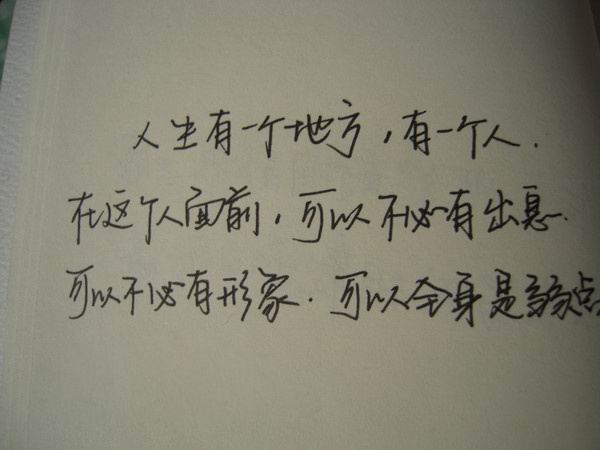 人生有一个地方,有一个人.
在这个人面前,可以不必有出息.
可以不必有形象.可以全身是弱点